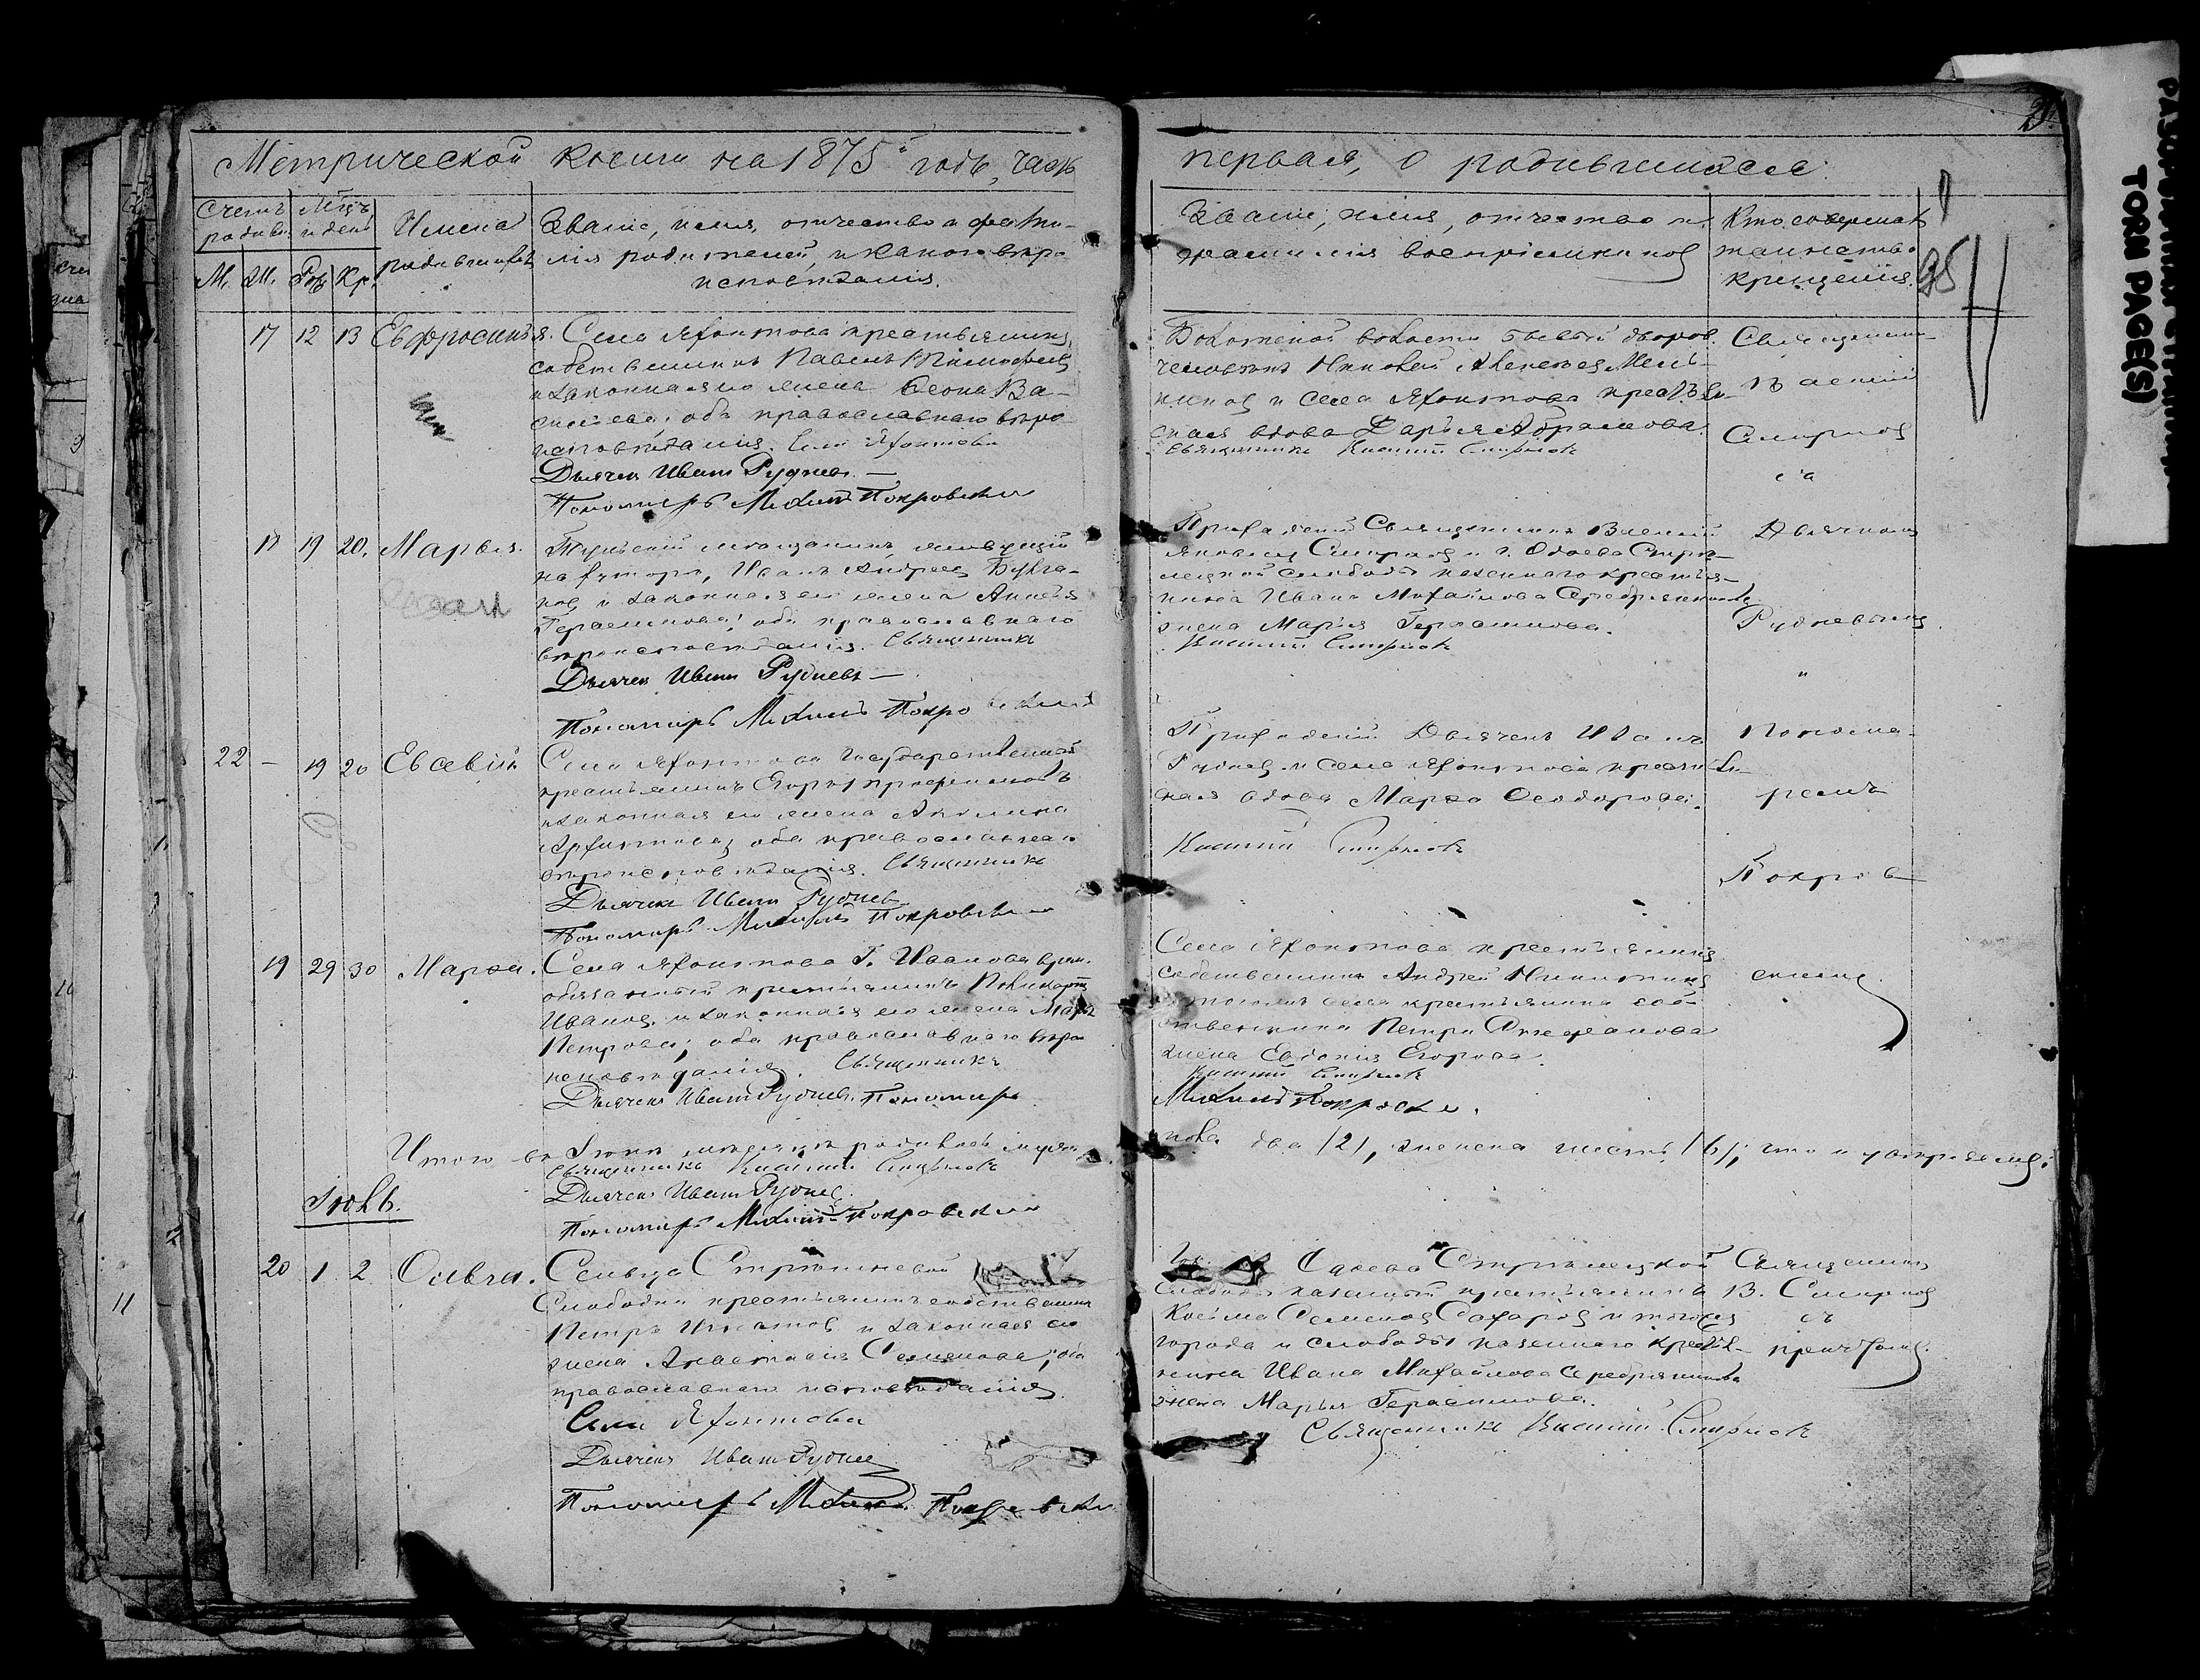 Метрической книги на 1875й годъ, часть
первая, о родившихся.
Счетъ родивш.
Мѣсцъ и день
Имена родившихся
Званіе, имя, отчество и фами-
лія родителей, и какого вѣро-
исповѣданія.
Званіе, имя, отчество и
фамилія воспріемниковъ
Кто совершалъ
таинство
крещенія.
М. Ж. Рож. Кр.
95
17 12 13 Евфросинія. Села Яхонтова крестьянинъ
собственникъ Павелъ Тимофеевъ
и законная его жена Ѳеона Ва-
сильева; оба православнаго вѣро-
исповѣданія. Села Яхонтова
Дьячекъ Иванъ Рудневъ.
Пономарь Михаилъ Покровскій
волости бывый дворов.
человѣкъ Николай Алексѣевъ
и села Яхонтова крестьян-
ская вдова Дарья Абрамова.
Священникъ Василій Смирновъ
Священникъ
Василій
Смирновъ
съ
18 19 20. Марья. Тульскій мѣщанинъ, живущій
на хуторѣ, Иванъ Андреевъ
и законная его жена
Герасимова; оба православнаго
вѣроисповѣданія. Священникъ
Дьячекъ Иванъ Рудневъ
Пономарь Михаилъ Покровскій
Приходскій Священникъ Василій
Яковлевъ Смирновъ и г. Одоева Стрѣ-
лецкой слободы казеннаго крестья-
нина Ивана Михайлова Серебрянникова
жена Марья Герасимова.
Василій Смирновъ
Дьячкомъ
Рудневымъ
и
22 - 19 20 Евсевій Села Яхонтова государственный
крестьянинъ Егоръ
и законная его жена Акилина
оба православнаго
вѣроисповѣданія. Священникъ
Дьячекъ Иванъ Рудневъ
Пономарь Михаилъ Покровскій
Приходскій Дьячекъ Иванъ
Рудневъ и села Яхонтова крестьян-
ская вдова Марѳа Ѳеодорова.
Василій Смирновъ
Понома-
ремъ
Покров-
19 29 30 Марѳа. Села Яхонтова Г. Иванова врем.
обязанный крестьянинъ Поликарпъ
Ивановъ и законная его жена
Петрова; оба православнаго вѣро-
исповѣданія. Священникъ
Дьячекъ Иванъ Рудневъ. Пономарь
Села Яхонтова крестьянинъ
собственникъ Андрей Никитинъ
и того же села крестьянина соб-
ственника Петра
жена Евдокія Егорова.
Василій Смирновъ
Михаилъ Покровскій.
скимъ.
Итого въ Іюнѣ мѣсяцѣ родилось мужес-
каго два /2/, женска шесть /6/; что и утверждаемъ.
Священникъ Василій Смирновъ
Дьячекъ Иванъ Рудневъ.
Пономарь Михаилъ Покровскій
Іюль.
20 1 2 Ольга. Сельца
Слободки крестьянинъ собственникъ
Петръ Игнатовъ и законная его
жена Анастасія Семенова; оба
православнаго исповѣданія.
Села Яхонтова
Дьячекъ Иванъ Рудневъ
Пономарь Михаилъ Покровскій
Одоева Стрѣлецкой
слободы казенный крестьянинъ
Косьма Семеновъ Сахаровъ и тогоже
города и слободы казеннаго крестья-
нина Ивана Михайлова Серебрянникова
жена Марья Герасимова.
Священникъ Василій Смирновъ
Священникъ
В. Смирновъ
съ
причтомъ.
11
TORN PAGE(S)